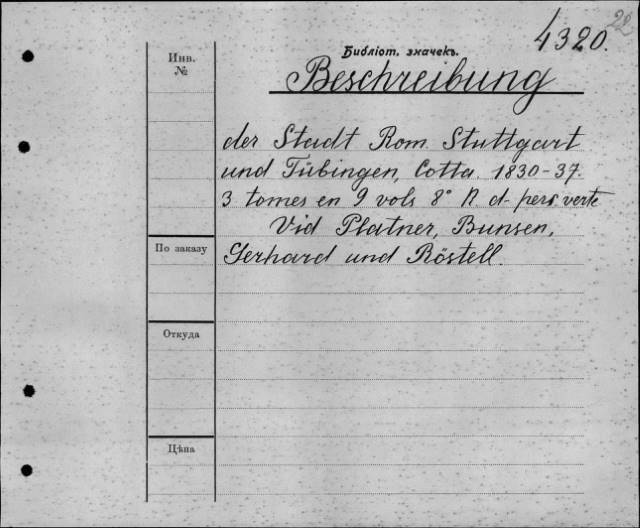 22
4320.
Библіот. значекъ.
Инв.
№
Beschreibung
der Stadt Rom. Stuttgart
und Tübingen, Cotta. 1830-37.
3 tomes en 9 vols 8° R. d. pers. verte
Vid Platner, Bunsen,
По заказу
Gerhard und Röstell.
Откуда
Цѣна